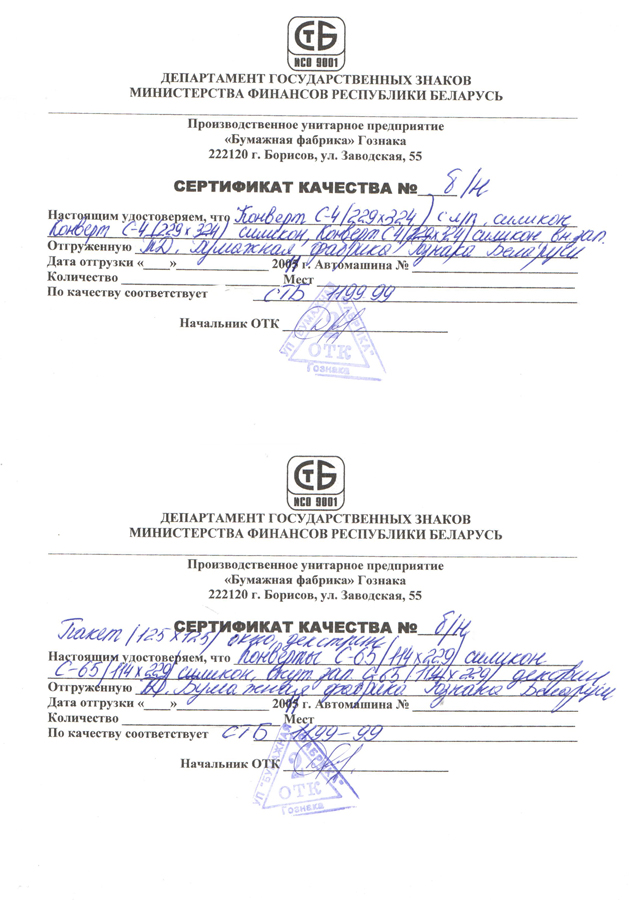 СТБ
ИСО 9001
ДЕПАРТАМЕНТ ГОСУДАРСТВЕННЫХ ЗНАКОВ
МИНИСТЕРСТВА ФИНАНСОВ РЕСПУБЛИКИ БЕЛАРУСЬ
Производственное унитарное предприятие
«Бумажная фабрика» Гознака
222120 г. Борисов, ул. Заводская, 55
СЕРТИФИКАТ КАЧЕСТВА № б/н
Настоящим удостоверяем, что Конверт С-4 (229х324) силикон
Конверт С-4 (229х324) силикон, Конверт С4 (229х324) силикон
Отгруженную Бумажная фабрика Гознака Беларуси
Дата отгрузки «____» 200 г. Автомашина №
Количество Мест
По качеству соответствует СТБ 1199 99
Начальник ОТК
УП "БУМАЖНАЯ ФАБРИКА"
ОТК
Гознака
СТБ
ИСО 9001
ДЕПАРТАМЕНТ ГОСУДАРСТВЕННЫХ ЗНАКОВ
МИНИСТЕРСТВА ФИНАНСОВ РЕСПУБЛИКИ БЕЛАРУСЬ
Производственное унитарное предприятие
«Бумажная фабрика» Гознака
222120 г. Борисов, ул. Заводская, 55
СЕРТИФИКАТ КАЧЕСТВА № б/н
Пакет (125х125) окно, декстрин
Настоящим удостоверяем, что конверты С-65 (114х229) силикон
С-65 (114х229) силикон, С-65 (114х229)
Отгруженную Бумажная фабрика Гознака Беларуси
Дата отгрузки «____» 200 г. Автомашина №
Количество Мест
По качеству соответствует СТБ 1199-99
Начальник ОТК
УП "БУМАЖНАЯ ФАБРИКА"
2
ОТК
Гознака